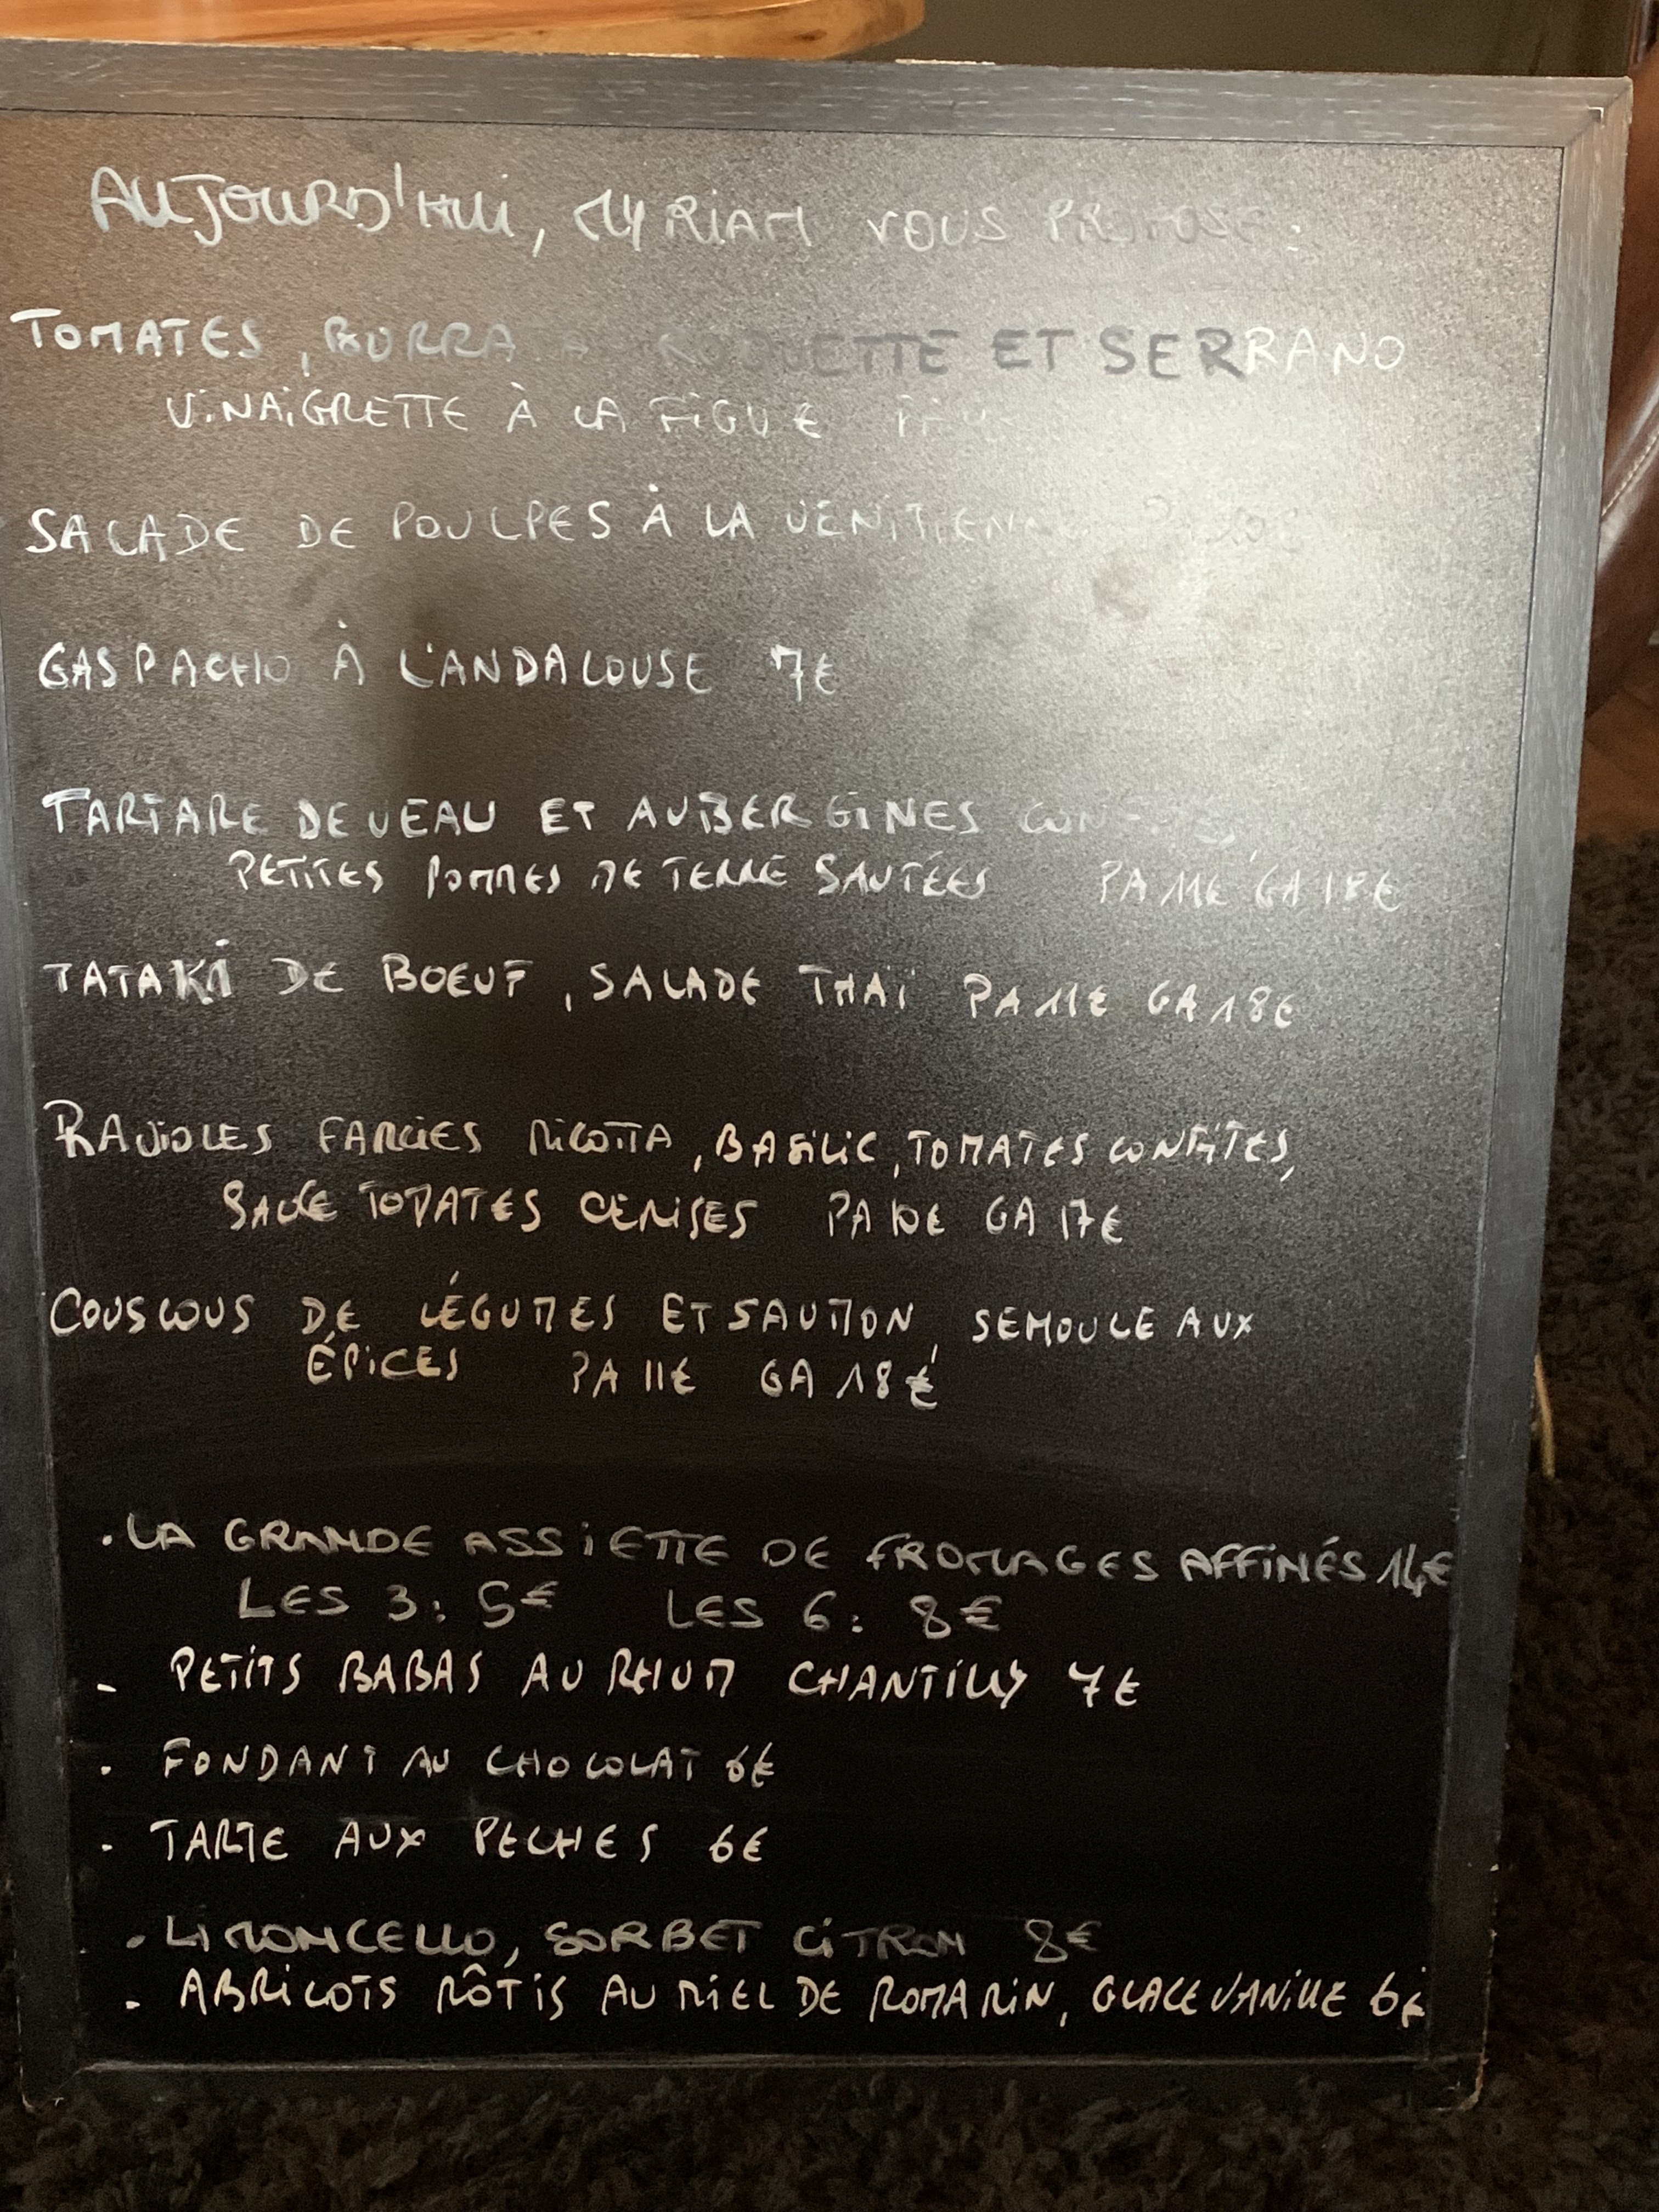 AUJOURD'HUI, MYRIAM VOUS PROPOSE:
TOMATES, BURRATA ROQUETTE ET SERRANO
VINAIGRETTE À LA FIGUE
SALADE DE POULPES À LA VENITIENNE
GASPACHO À L'ANDALOUSE 7€
TARTARE DE VEAU ET AUBERGINES CONFITES,
PETITES POMMES DE TERRE SAUTÉES PA 11€ GA 18€
TATAKI DE BOEUF, SALADE THAÏ PA 11€ GA 18€
RAVIOLES FARCIES RICOTTA, BASILIC, TOMATES CONFITES,
SAUCE TOMATES CERISES PA 10€ GA 17€
COUSCOUS DE LÉGUMES ET SAUMON, SEMOULE AUX
ÉPICES PA 11€ GA 18€
. LA GRANDE ASSIETTE DE FROMAGES AFFINÉS 14€
LES 3: 5€ LES 6: 8€
- PETITS BABAS AU RHUM CHANTILLY 7€
. FONDANT AU CHOCOLAT 6€
. TARTE AUX PECHES 6€
. LIMONCELLO, SORBET CITRON 8€
. ABRICOTS RÔTIS AU MIEL DE ROMARIN, GLACE VANILLE 6€